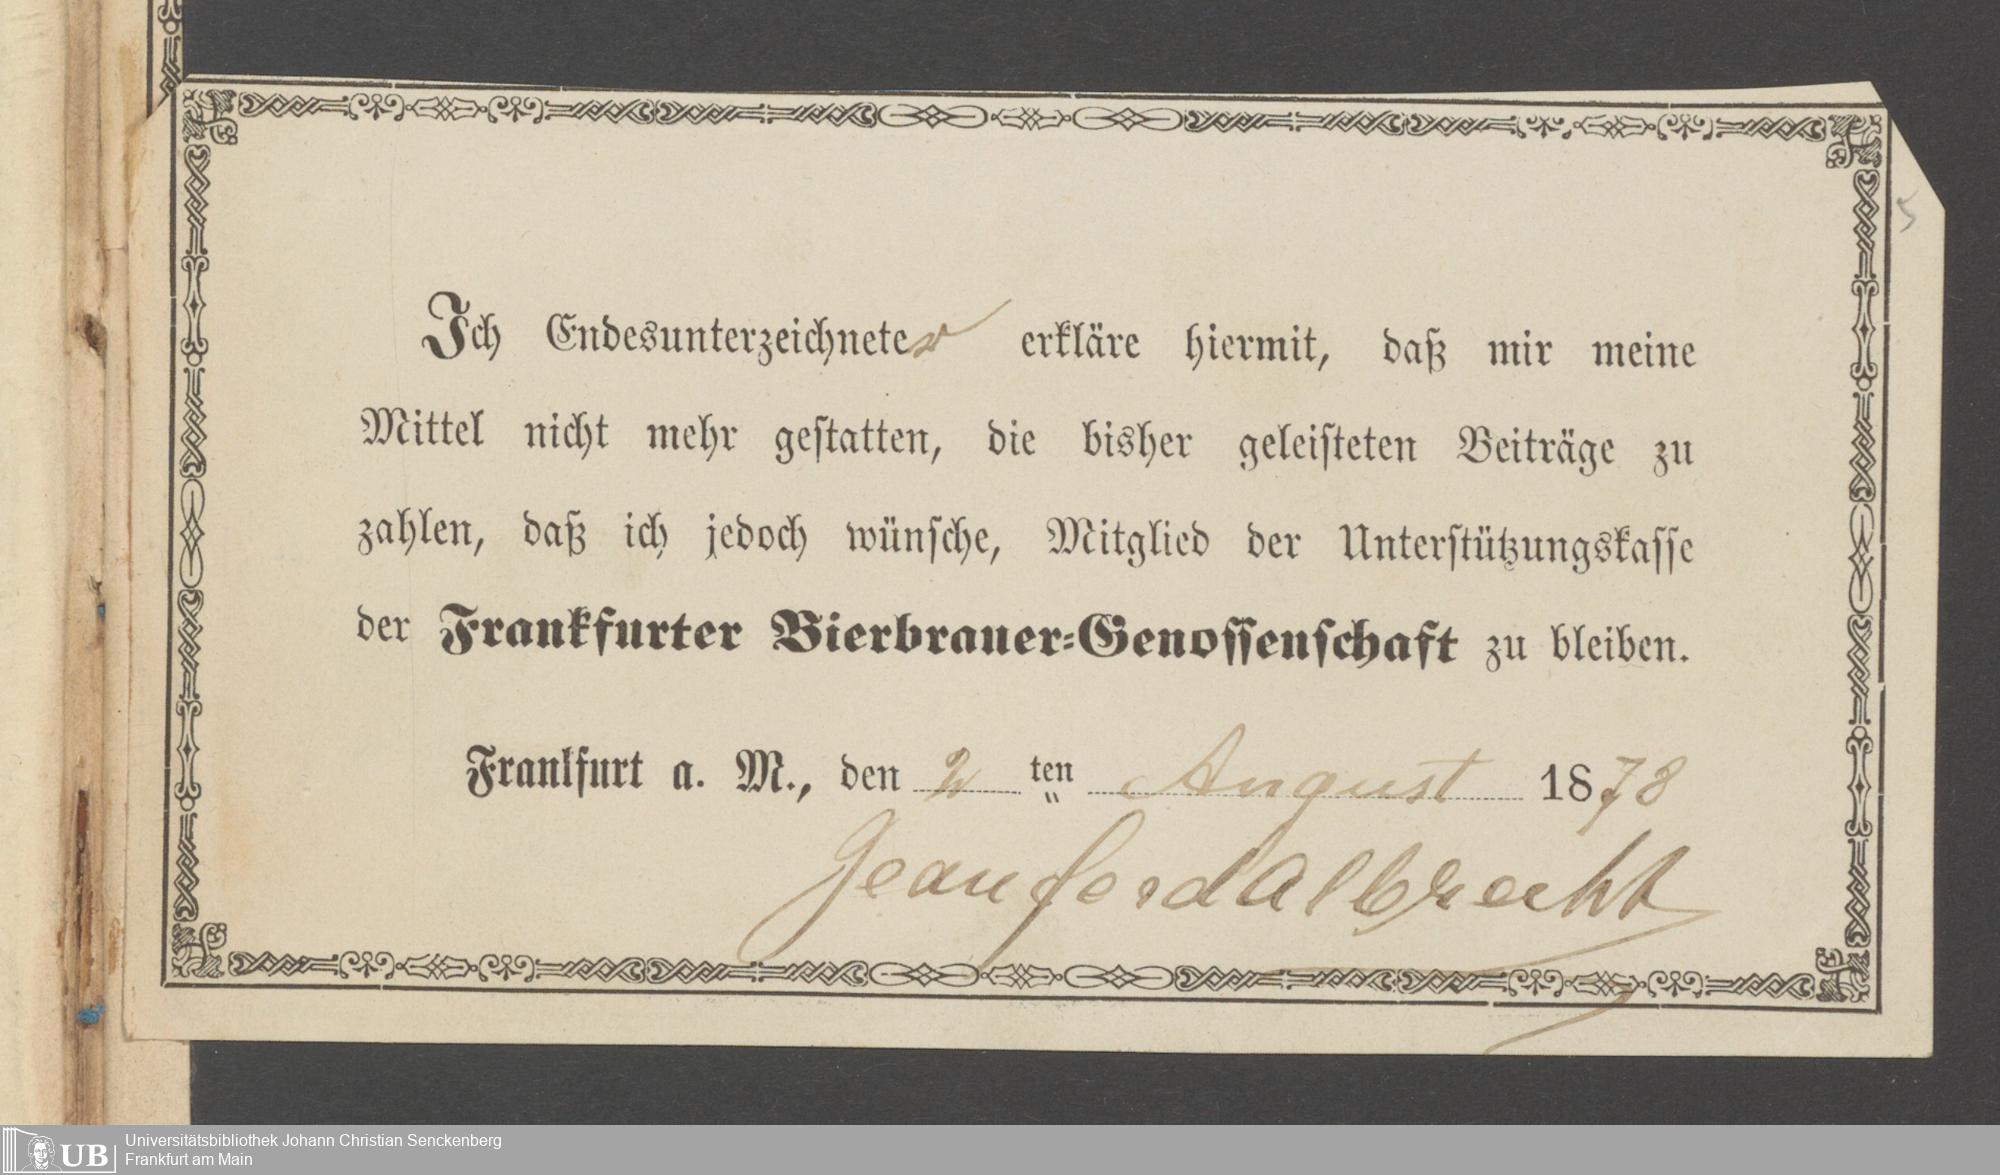 5
Ich Endesunterzeichneter erkläre hiermit, daß mir meine
Mittel nicht mehr gestatten, die bisher geleisteten Beiträge zu
zahlen, daß ich jedoch wünsche, Mitglied der Unterstützungskasse
der Frankfurter Bierbrauer-Genossenschaft zu bleiben.
Frankfurt a. M., den 2 ten August 1878
Jean Ferd Albrecht
UB Universitätsbibliothek Johann Christian Senckenberg
Frankfurt am Main